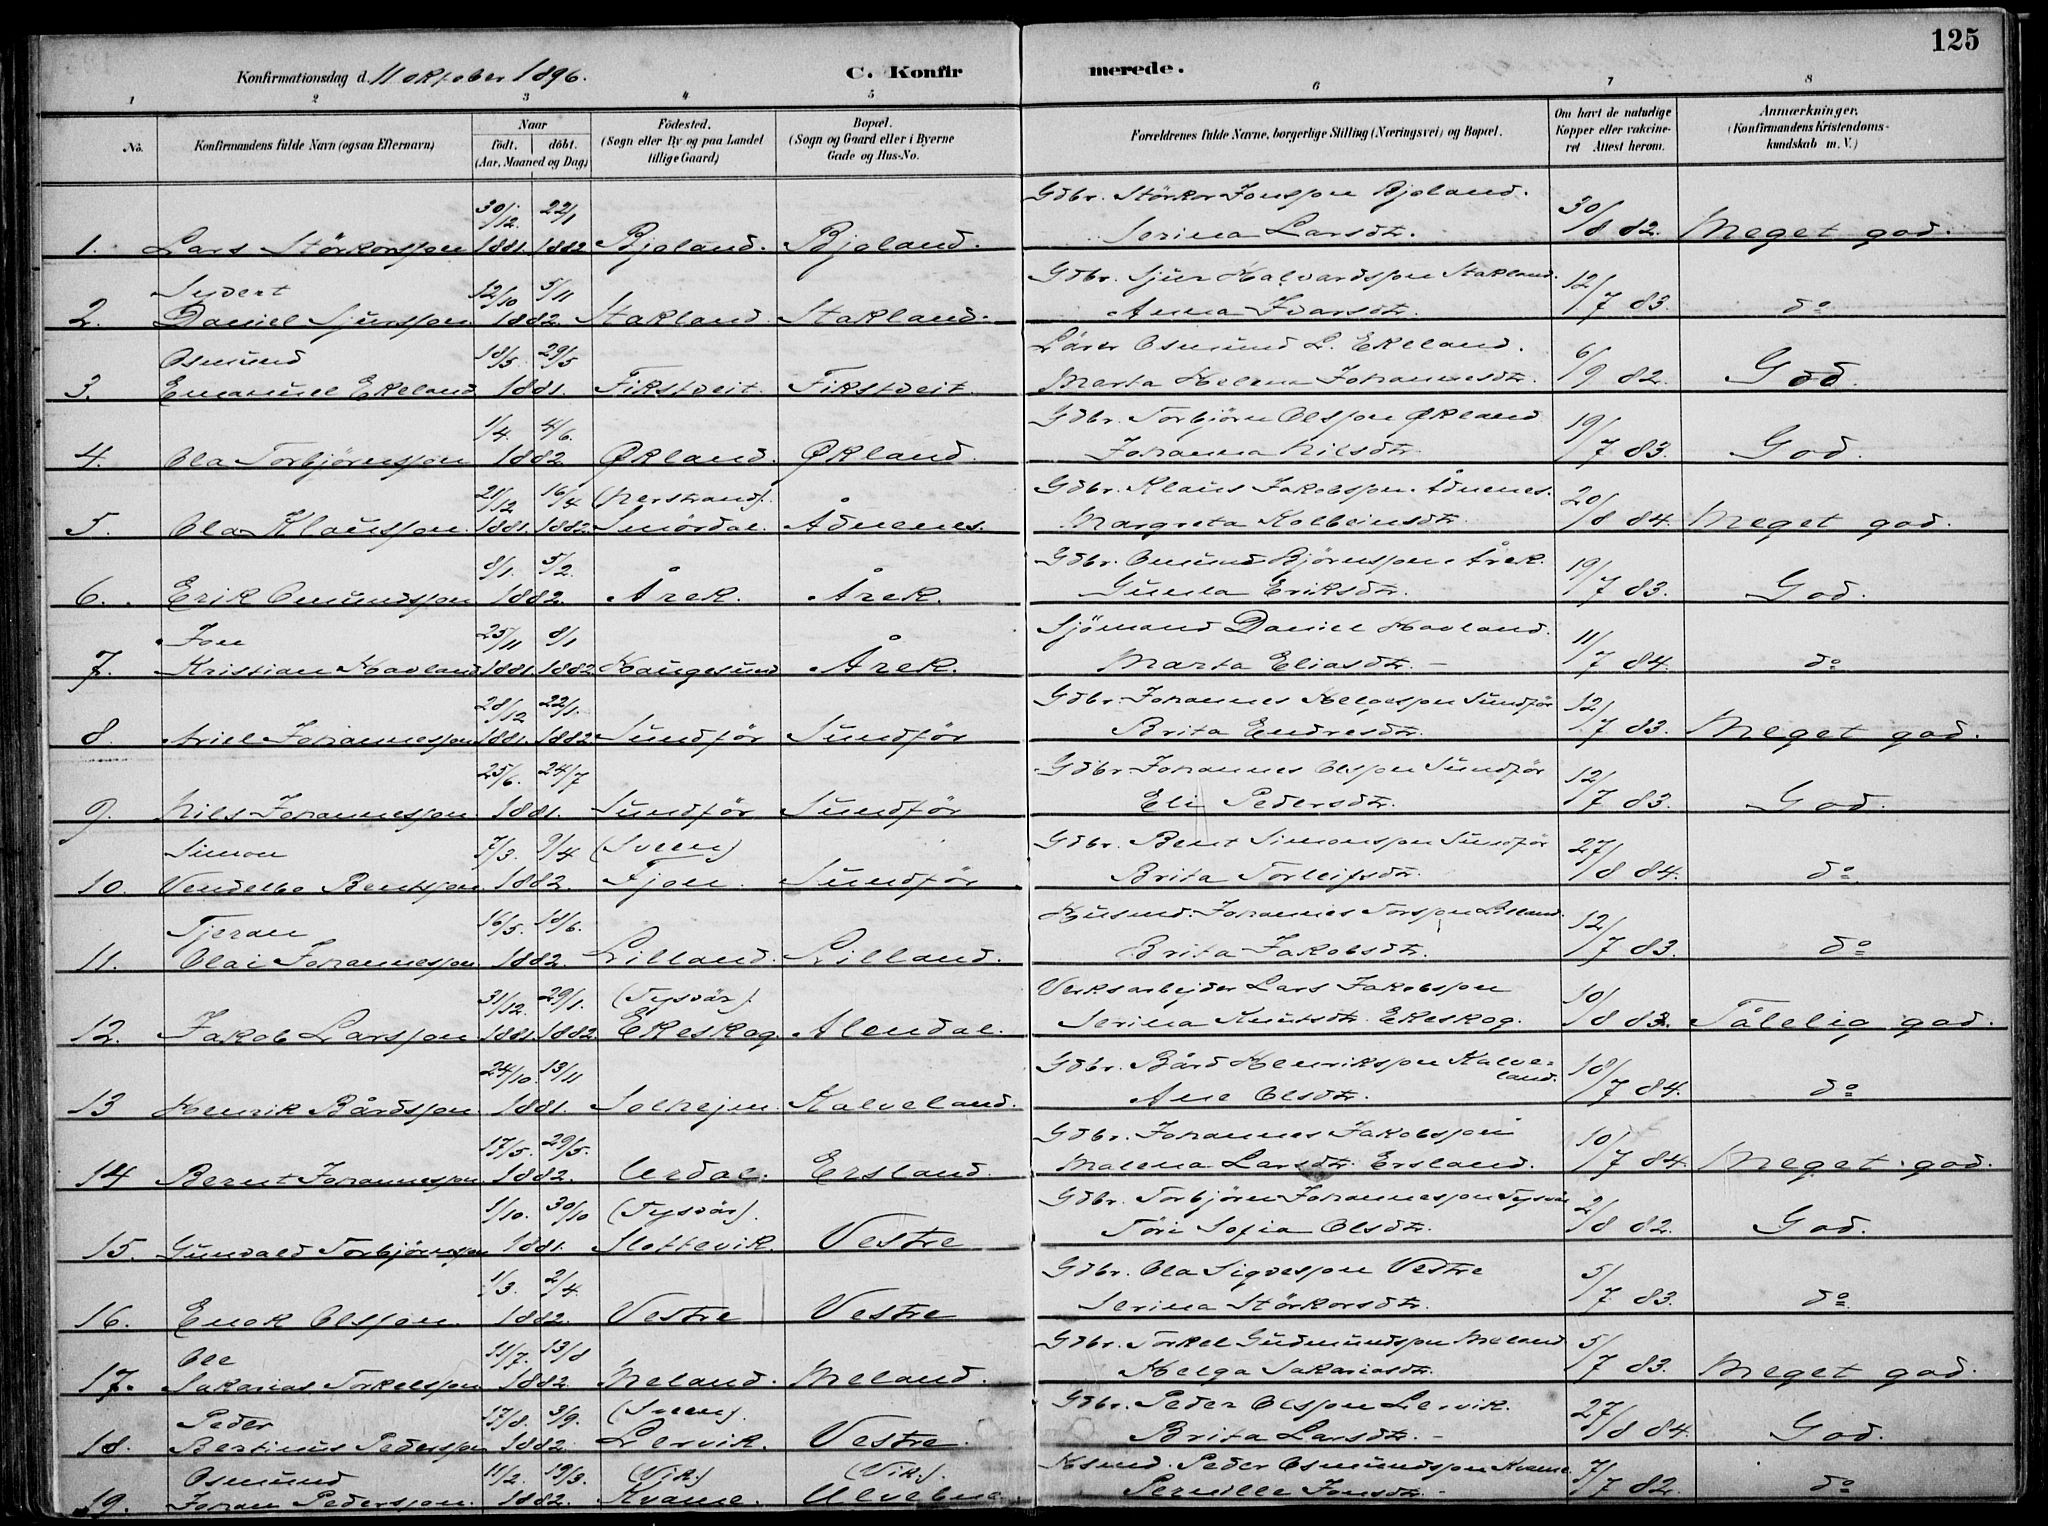 125
Konfirmationsdag d. 11 oktober 1896. C. Konfirmerede.
1 2 3 4 5 6 7 8
No. Konfirmandens fulde Navn (ogsaa Efternavn) Naar født. døbt. (Aar, Maaned og Dag) Fødested. (Sogn eller By og paa Landet tillige Gaard) Bopæl. (Sogn og Gaard eller i Byerne Gade og Hus-No. Forældrenes fulde Navne, borgerlige Stilling (Næringsvei) og Bopæl. Om havt de naturlige Kopper eller vakcineret Attest herom. Anmærkninger. (Konfirmandens Kristendomskundskab m. V.)
30/12. 22/1 Gdbr. Störkor Jonsson Bjoland.
1. Lars Störkorsson 1881. 1882 Bjoland. Bjoland. Serina Larsdtr. 30/8 82. Meget god.
Sydert 12/10 5/11 Gdbr. Sjur Halvardsson Stakland.
2. Daniel Sjursson 1882. Stakland. Stakland. Anna Ivarsdtr. 12/7 83. do
Osmund 18/5. 29/5 Lärer Osmund L. Ekeland.
3. Emanuel Ekeland 1881. Fikstveit. Fikstveit. Marta Helena Johannesdtr. 6/9 82. God.
1/4. 4/6. Gdbr. Torbjörn Olsson Økland
4. Ola Torbjörnsson 1882 Økland. Økland. Johanna Nilsdtr. 19/7 83. God.
21/12 16/4 (Nerstrand). Gdbr. Klaus Jakobsson Ådnenes.
5. Ola Klausson. 1881. 1882. Smördal. Ådnenes. Margreta Kolbeinsdtr. 20/8 84. Meget god.
8/1. 5/2. Gdbr. Omund Björnsson Årek.
6. Erik Omundsson 1882. Årek. Årek. Gunla Eriksdtr. 19/7 83. God.
Jon 25/11 8/1 Sjömand Daniel Havland.
7. Kristian Havland 1881. 1882 Haugesund Årek. Marta Eliasdtr. 11/7 84. do
28/12 22/1. Gdbr. Johannes Helgesson Sundför
8. Ariel Johannesson 1881. 1882 Sundför Sundför Brita Endresdtr. 12/7 83. Meget god.
25/6. 24/7 Gdbr. Johannes Olsson Sundför
9. Nils Johannesson 1881. Sundför Sundför Eli Pedersdtr. 12/7 83. God.
Simon 7/3. 9/4 (Sveen) Gdbr. Bent Simonsson Sundför
10. Vendelbo Bentsson 1882. Fjon. Sundför Brita Torleifsdtr. 27/8 84. do
Tjeran 16/5. 18/6. Husmd. Johannes Torsson Lilland.
11. Olai Johannesson 1882. Lilland. Lilland. Brita Jakobsdtr. 12/7 83. do
31/12. 29/1. (Tysvär). Verksarbejder Lars Jakobsson
12. Jakob Larsson 1881. 1882. Ekeskog. Alendal. Serina Knutsdtr. Ekeskog. 10/8 83. Tålelig god.
24/10. 13/11 Gdbr. Bård Henriksson Kalveland.
13 Henrik Bårdsson 1881. Solhejm Kalveland. Ane Olsdtr. 10/7 84. do
17/5. 29/5. Gdbr. Johannes Jakobsson
14 Bernt Johannesson 1882. Urdal. Ersland. Malena Larsdtr. Ersland. 10/7 84. Meget god.
1/10. 30/10 (Tysvär). Gdbr. Torbjörn Johannesson Tysvär
15. Gunvald Torbjörnsson 1881. Slottevik. Vestre Töri Sofia Olsdtr. 2/8 82. God.
1/3. 2/4. Gdbr. Ola Sigvesson Vestre
16. Enok Olsson. 1882. Vestre Vestre Serina Störkorsdtr. 5/7 83. do
Ole 11/7. 13/8 Gdbr. Torkel Gudmundsson Meland
17. Sakarias Torkelsson 1882. Meland. Meland. Helga Sakariasdtr. 5/7 83. Meget god.
Peder 17/8. 3/9. (Sveen). Gdbr. Peder Olsson Lervik.
18. Bertinus Pedersson 1882. Lervik. Vestre. Brita Larsdtr. 27/8 84. God.
Osmund 11/2. 19/3. (Vik.) (Vik.). Husmd. Peder Osmundsson Kvame
19. Johan Pedersson. 1882. Kvame. Pernille Jonsdtr. 7/7 82. do